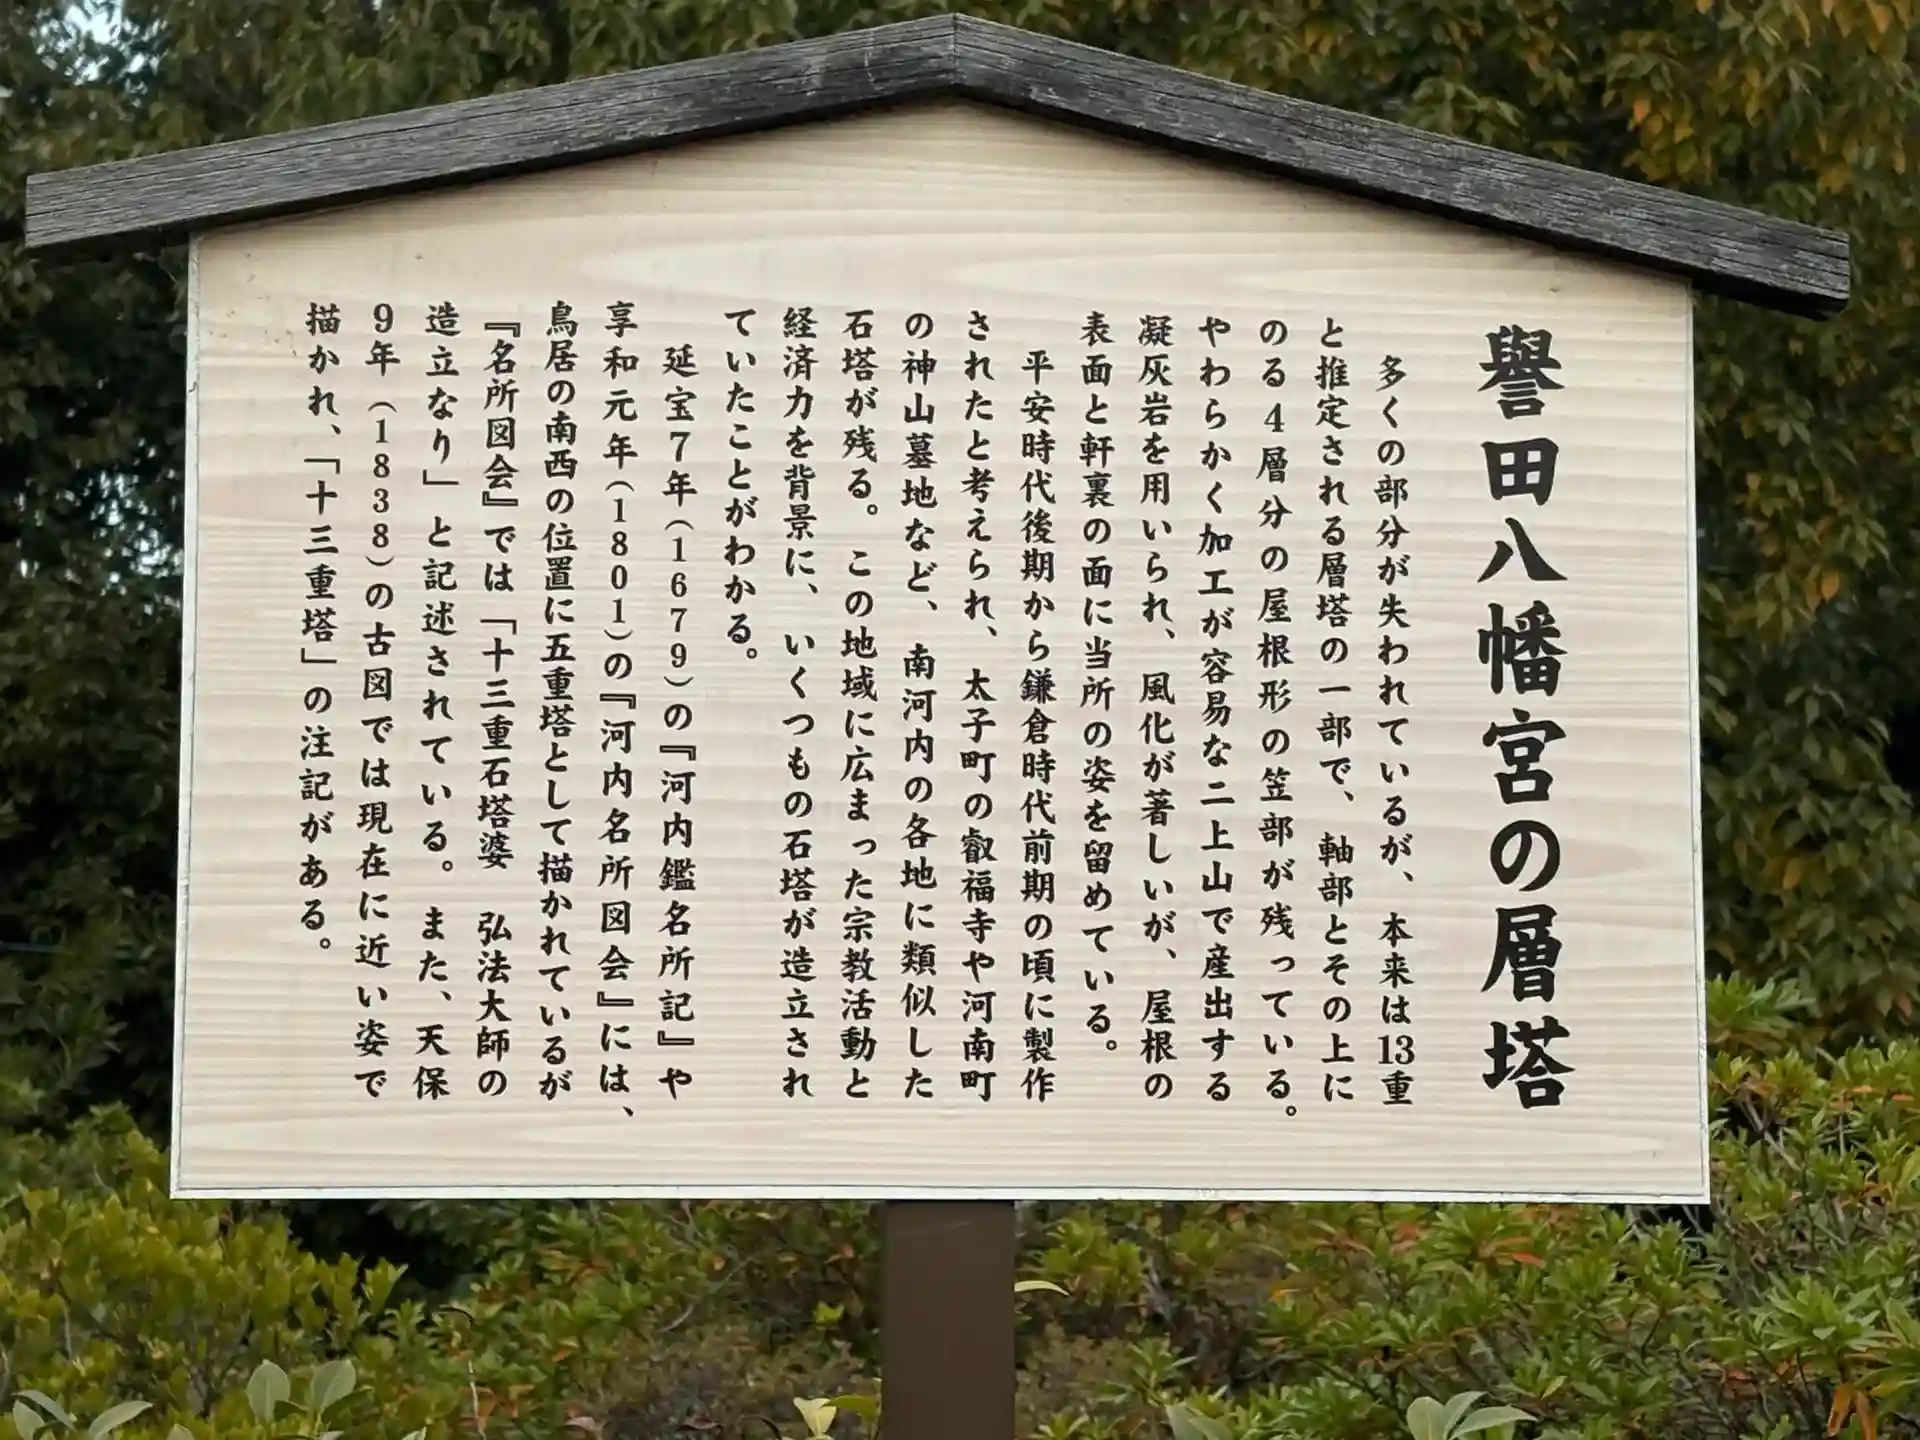 譽田八幡宮の層塔
多くの部分が失われているが、本来は13重
と推定される層塔の一部で、軸部とその上に
のる4層分の屋根形の笠部が残っている。
やわらかく加工が容易な二上山で産出する
凝灰岩を用いられ、風化が著しいが、屋根の
表面と軒裏の面に当所の姿を留めている。
平安時代後期から鎌倉時代前期の頃に製作
されたと考えられ、太子町の叡福寺や河南町
の神山墓地など、南河内の各地に類似した
石塔が残る。この地域に広まった宗教活動と
経済力を背景に、いくつもの石塔が造立され
ていたことがわかる。
延宝7年(1679)の『河内鑑名所記』や
享和元年(1801)の『河内名所図会』には、
鳥居の南西の位置に五重塔として描かれているが
『名所図会』では「十三重石塔婆　弘法大師の
造立なり」と記述されている。また、天保
9年(1838)の古図では現在に近い姿で
描かれ、「十三重塔」の注記がある。